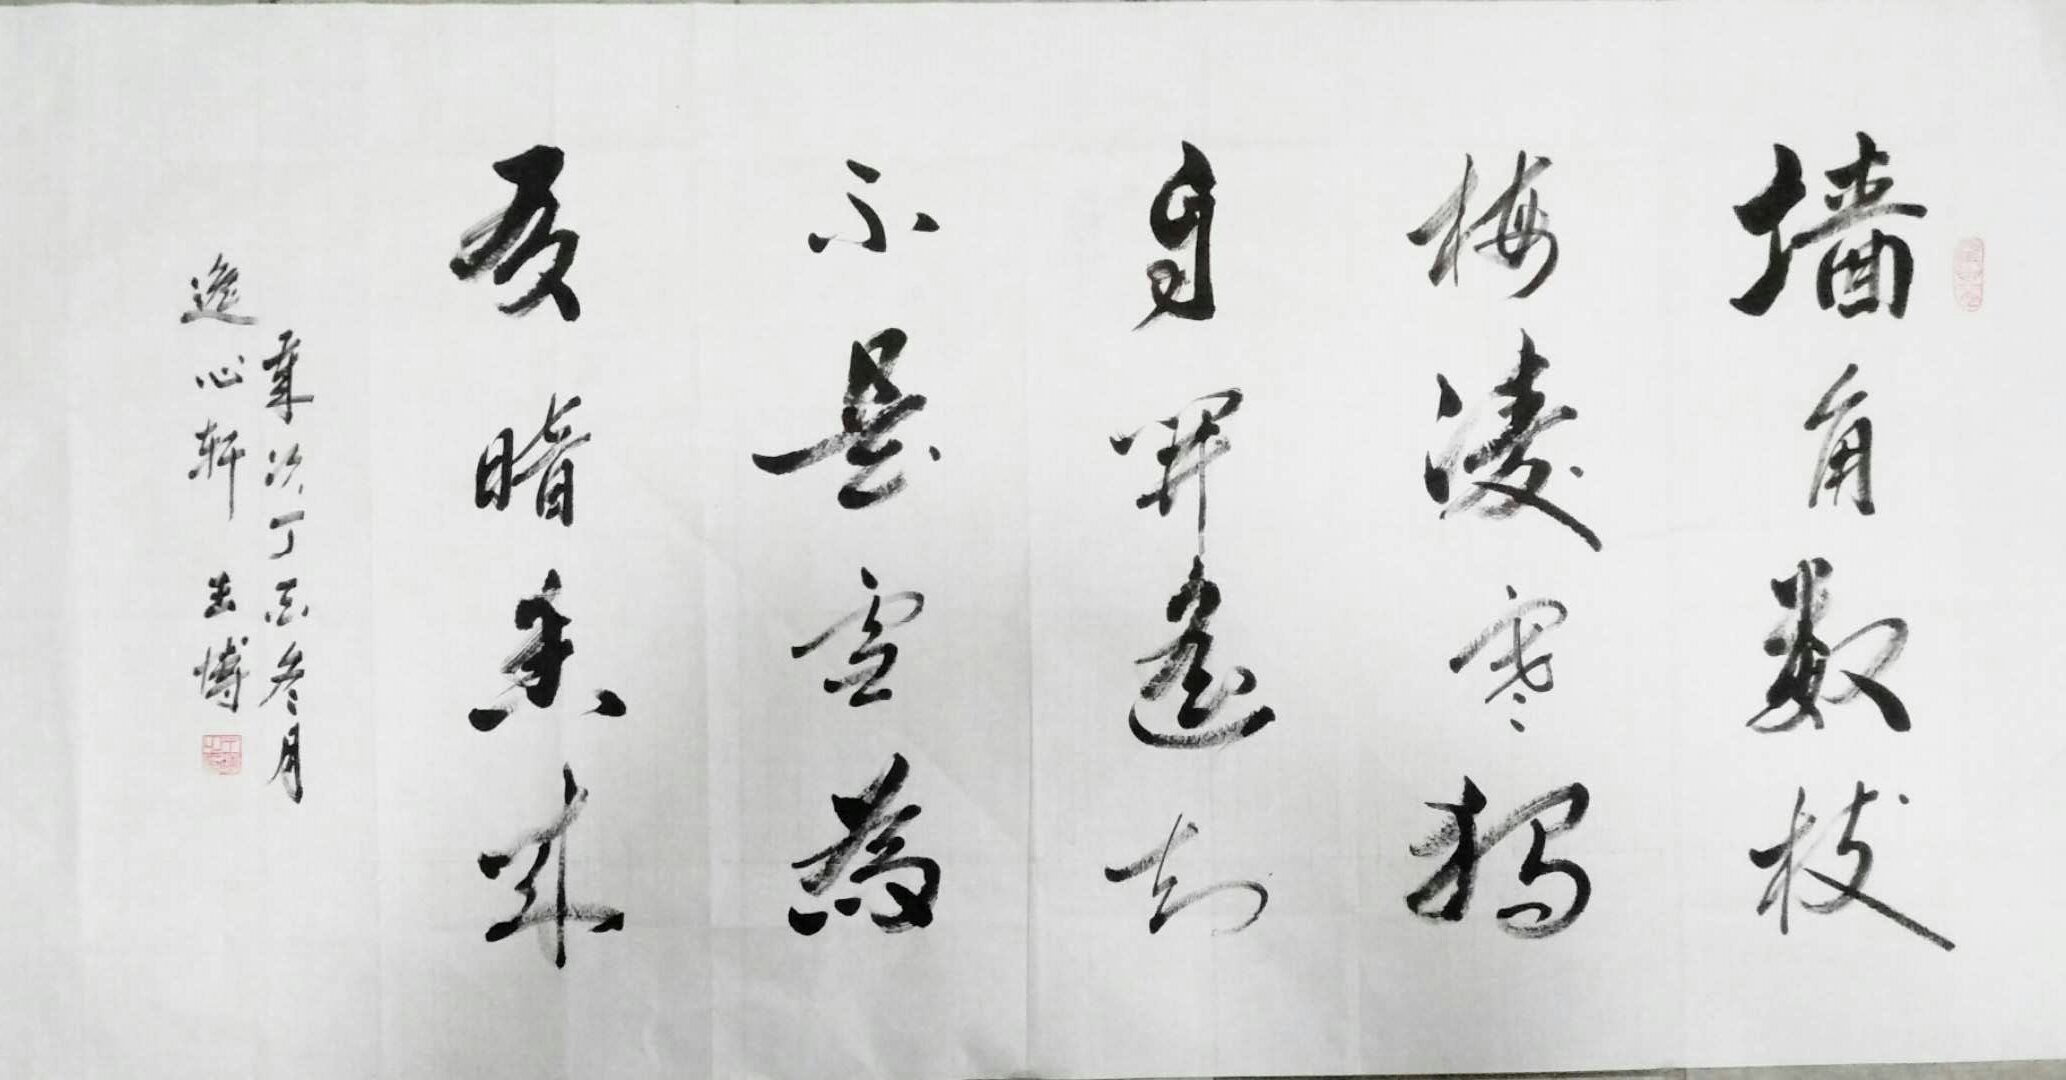 墙角数枝
梅凌寒独
自開遥知
不是雪為
有暗香来
歲次丁酉冬月
逸心轩 博